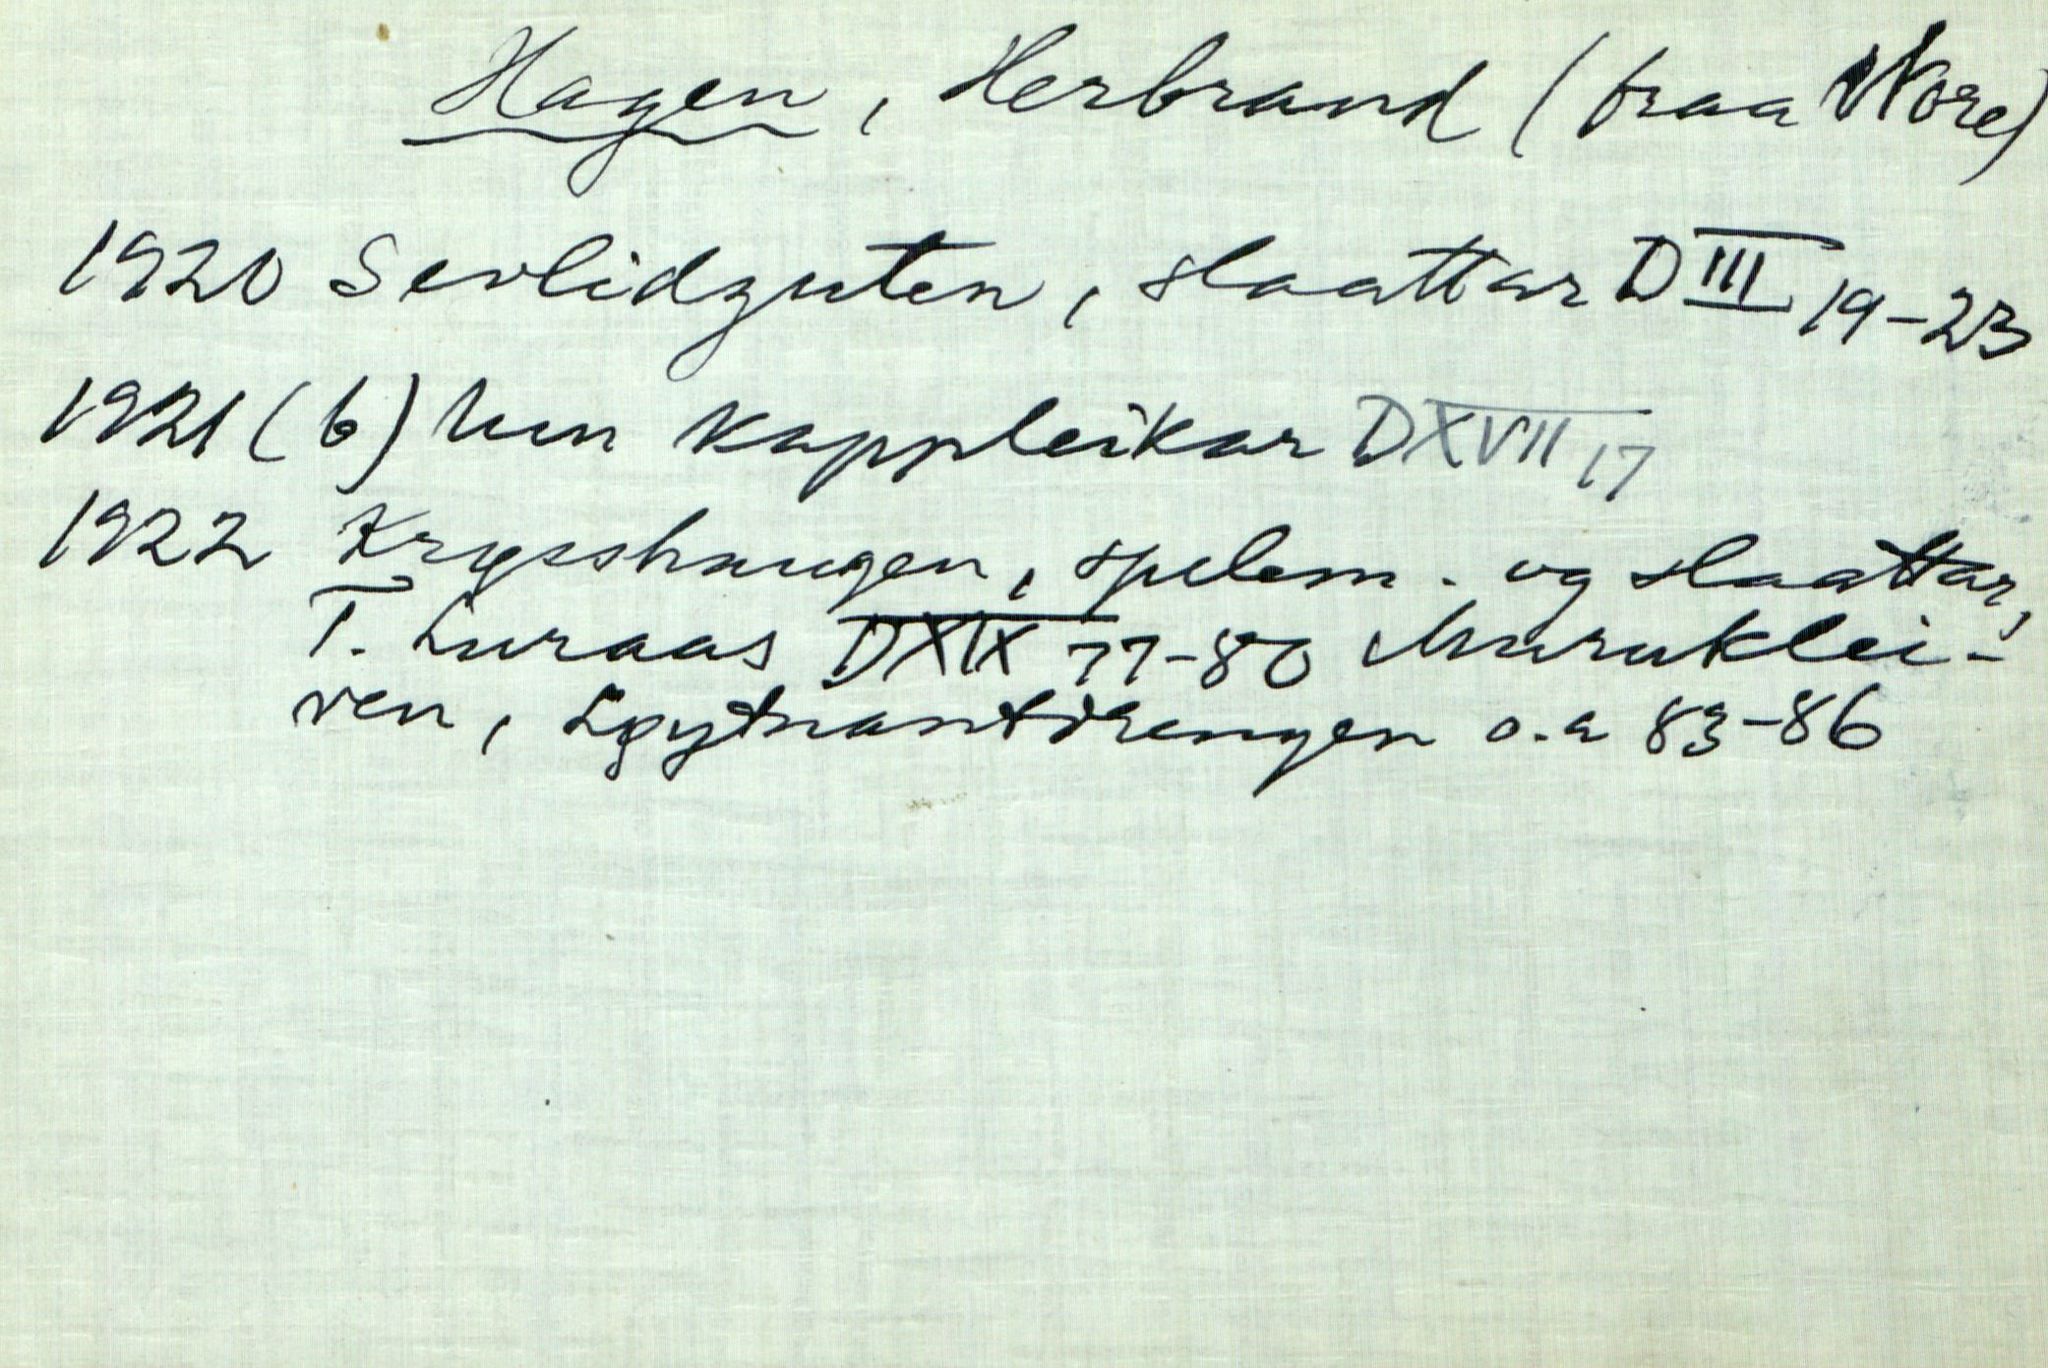 Hagen, Herbrand (fraa Nore)
1920 Sevlidguten, slaattar D III 19-23
1921 (b) Um kappleikar D XVII 17
1922 Krysshaugen, spelem. og slaattar,
T. Luraas D XIX 77-80 Muruklei-
ven, Løytnantdrengen o.a 83-86